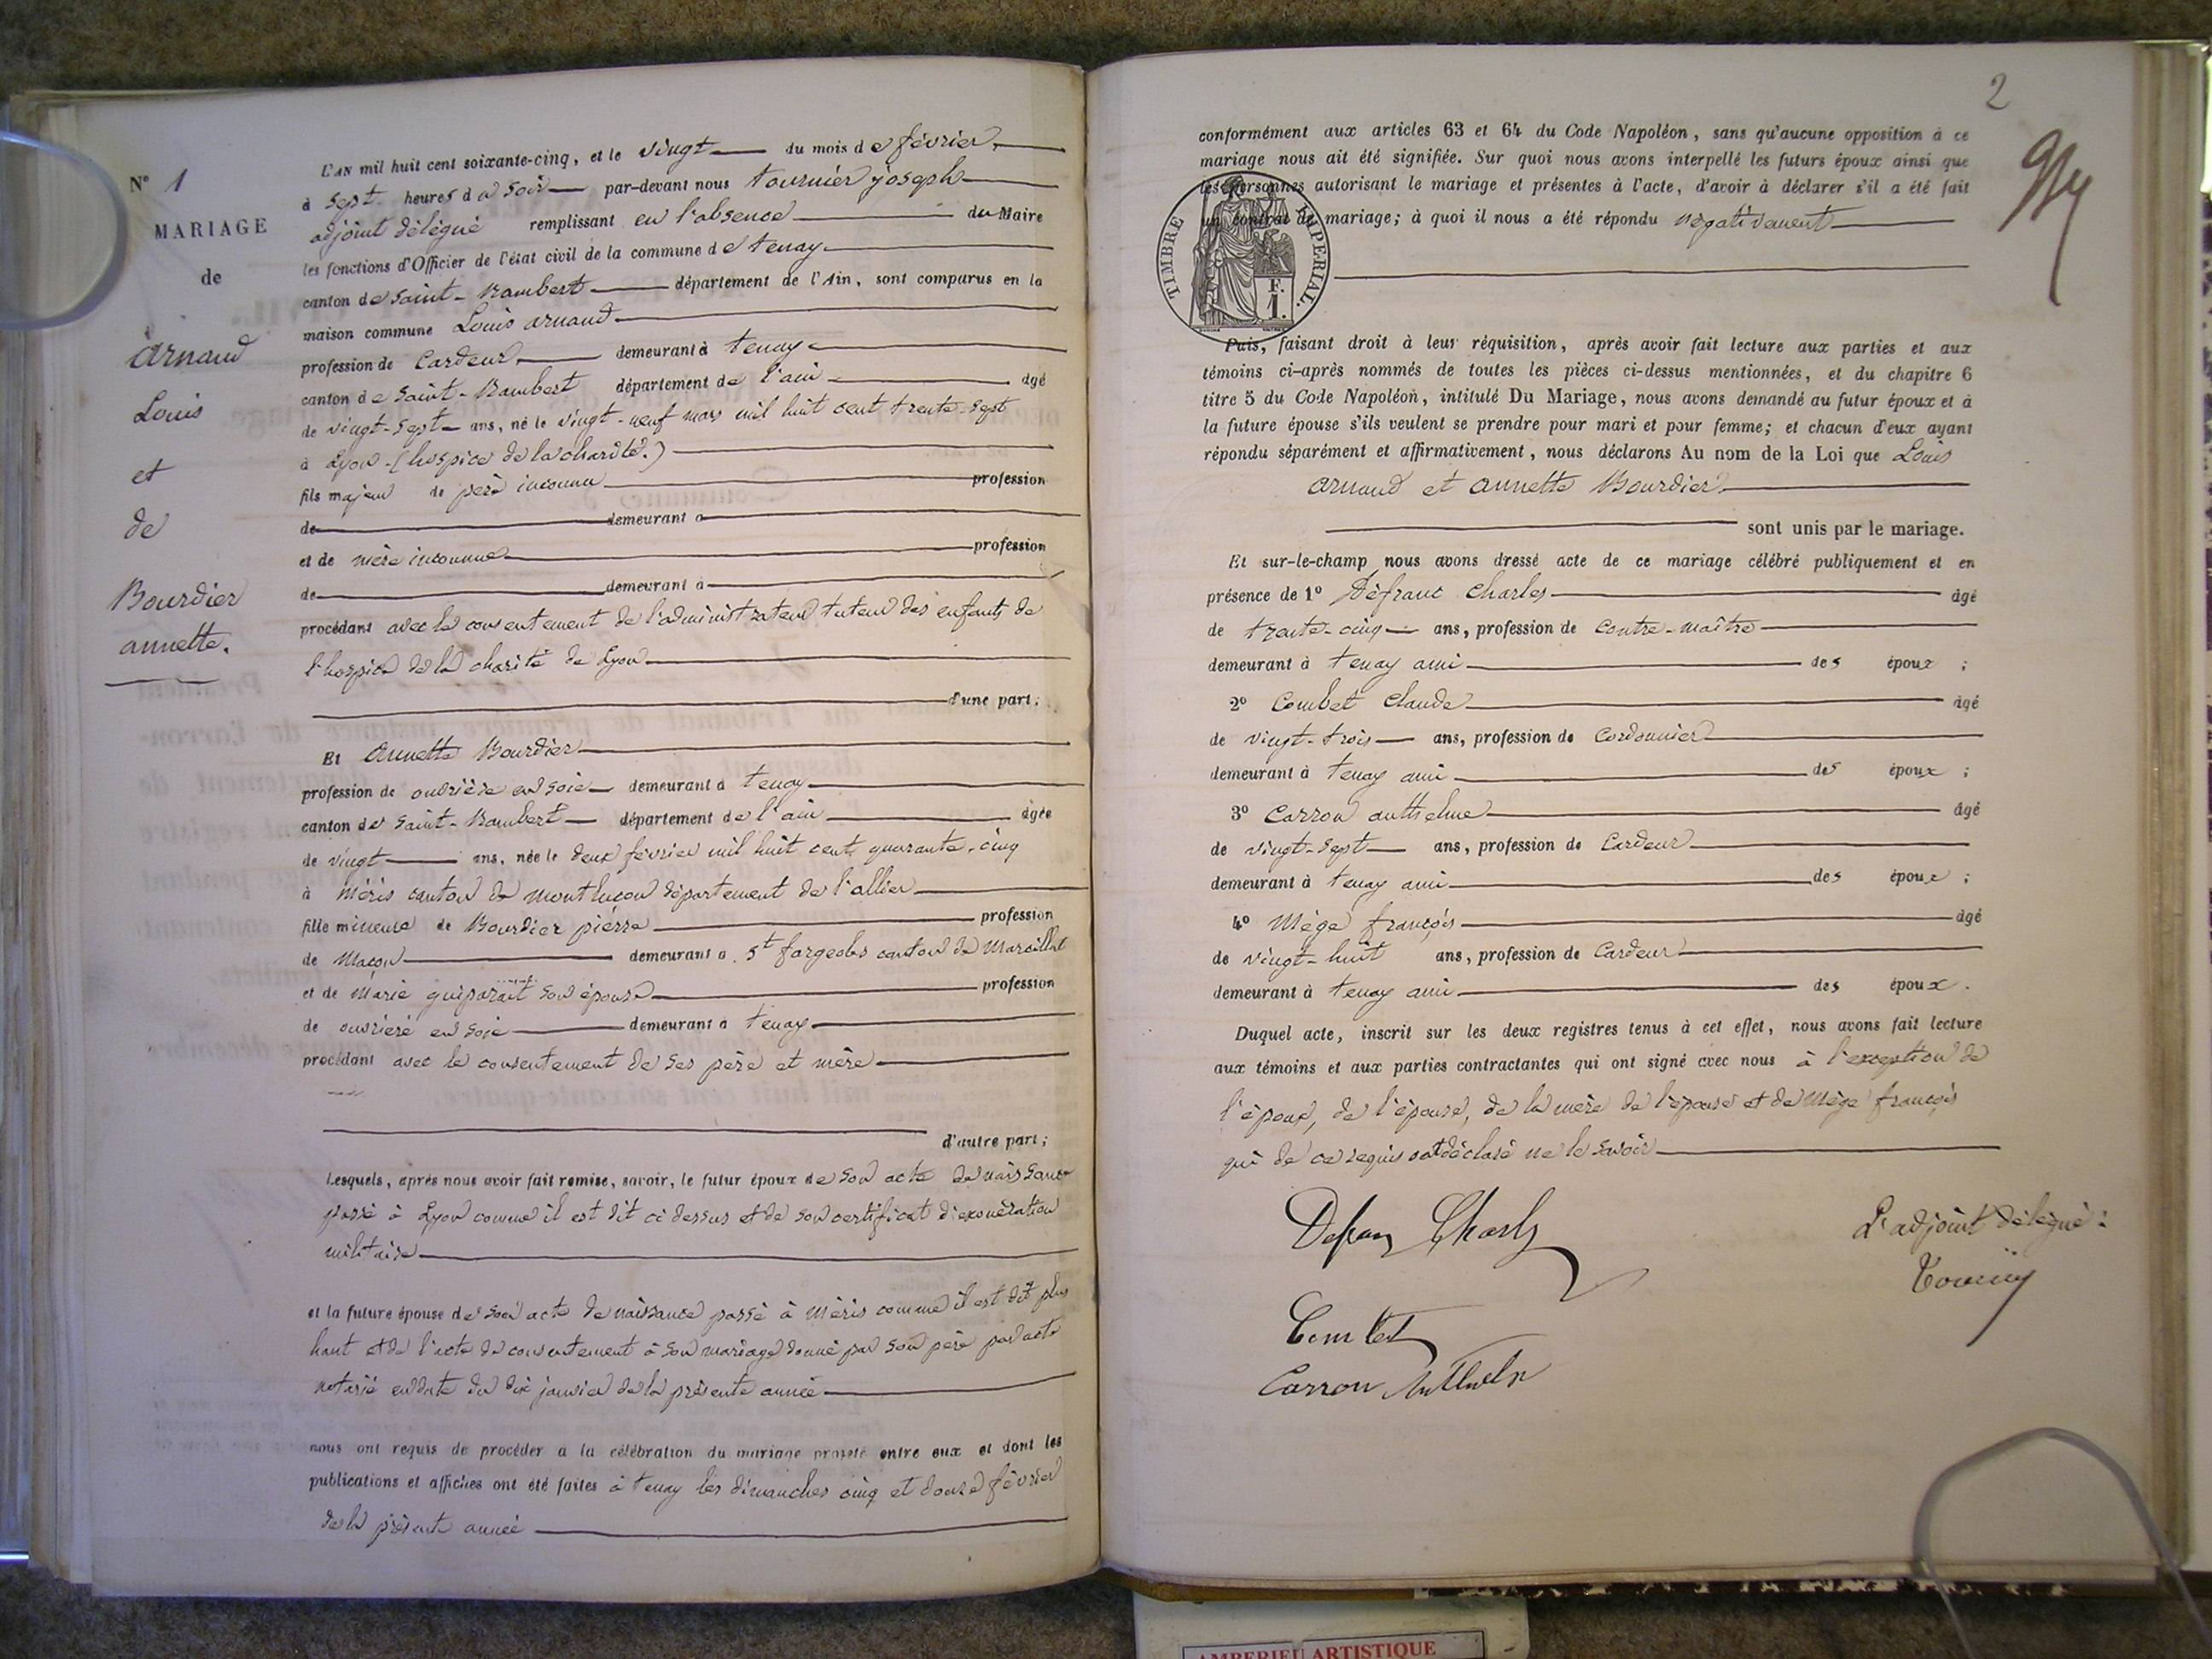 N° 1
MARIAGE
de
Arnaud
Louis
et
de
Bourdier
annette.
L'AN mil huit cent soixante-cinq, et le vingt du mois de février
à sept heures du soir par-devant nous tournier joseph
adjoint délégué remplissant en l'absence du Maire
les fonctions d'Officier de l'état civil de la commune de tenay
canton de saint-Rambert département de l'Ain, sont comparus en la
maison commune Louis arnaud
profession de Cardeur demeurant à tenay
canton de Saint-Rambert département de l'ain âgé
de vingt-sept ans, né le vingt-neuf mars mil huit cent trente-sept
à Lyon (hospice de la charité.)
fils majeur de père inconnu profession
de demeurant à
et de mère inconnue profession
de demeurant à
procédant avec le consentement de l'administrateur tuteur des enfants de
l'hospice de la charité de Lyon
d'une part;
Et Annette Bourdier
profession de ouvrière en soie demeurant à tenay
canton de Saint-Rambert département de l'ain âgée
de vingt ans, née le deux février mil huit cent quarante-cinq
à Néris canton de montluçon département de l'allier
fille mineure de Bourdier pierre profession
de Maçon demeurant à St fargeols canton de Marcillat
et de Marie son épouse profession
de ouvrière en soie demeurant à tenay
procédant avec le consentement de ses père et mère
d'autre part;
Lesquels, après nous avoir fait remise, savoir, le futur époux de son acte de naissance
passé à Lyon comme il est dit ci dessus et de son certificat d'exonération
militaire
et la future épouse de son acte de naissance passé à Néris comme il est dit plus
haut et de l'acte de consentement à son mariage donné par son père par acte
notarié en date du dix janvier de la présente année
nous ont requis de procéder à la célébration du mariage projeté entre eux et dont les
publications et affiches ont été faites à tenay les dimanches cinq et douze février
de la présente année
2
conformément aux articles 63 et 64 du Code Napoléon, sans qu'aucune opposition à ce
mariage nous ait été signifiée. Sur quoi nous avons interpellé les futurs époux ainsi que
les personnes autorisant le mariage et présentes à l'acte, d'avoir à déclarer s'il a été fait
un contrat de mariage; à quoi il nous a été répondu négativement
TIMBRE IMPERIAL.
F.
1.
Puis, faisant droit à leur réquisition, après avoir fait lecture aux parties et aux
témoins ci-après nommés de toutes les pièces ci-dessus mentionnées, et du chapitre 6
titre 5 du Code Napoléon, intitulé Du Mariage, nous avons demandé au futur époux et à
la future épouse s'ils veulent se prendre pour mari et pour femme; et chacun d'eux ayant
répondu séparément et affirmativement, nous déclarons Au nom de la Loi que Louis
arnaud et annette Bourdier
sont unis par le mariage.
Et sur-le-champ nous avons dressé acte de ce mariage célébré publiquement et en
présence de 1° Défranc Charles âgé
de trente-cinq ans, profession de Contre-maître
demeurant à tenay ami des époux ;
2° Combet Claude âgé
de vingt-trois ans, profession de Cordonnier
demeurant à tenay ami des époux ;
3° Carron anthelme âgé
de vingt-sept ans, profession de Cardeur
demeurant à tenay ami des époux ;
4° Mège françois âgé
de vingt-huit ans, profession de Cardeur
demeurant à tenay ami des époux .
Duquel acte, inscrit sur les deux registres tenus à cet effet, nous avons fait lecture
aux témoins et aux parties contractantes qui ont signé avec nous à l'exception de
l'époux, de l'épouse, de la mère de l'épouse et de Mège françois
qui de ce requis ont déclaré ne le savoir
L'adjoint délégué :
Combet
Carron
AMBERIEU ARTISTIQUE